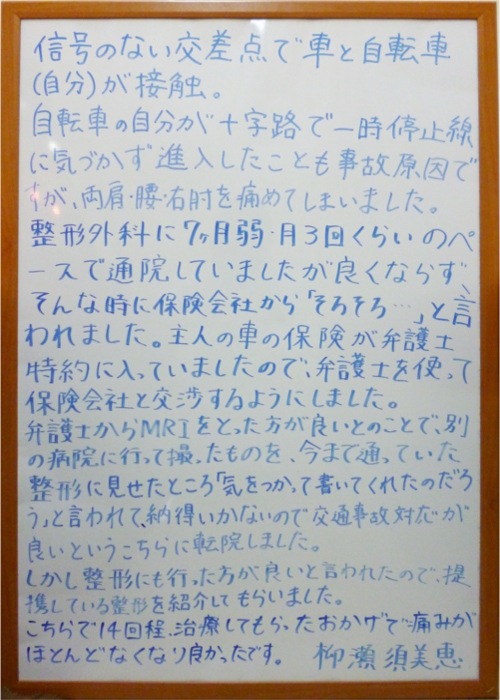 信号のない交差点で車と自転車
(自分)が接触。
自転車の自分が十字路で一時停止線
に気づかず進入したことも事故原因で
すが、両肩・腰・右肘を痛めてしまいました。
整形外科に7ヶ月弱・月3回くらいのペ
ースで通院していましたが良くならず、
そんな時に保険会社から「そろそろ…」と言
われました。主人の車の保険が弁護士
特約に入っていましたので、弁護士を使って
保険会社と交渉するようにしました。
弁護士からMRIをとった方が良いとのことで、別
の病院に行って撮ったものを、今まで通っていた
整形に見せたところ「気をつかって書いてくれたのだろ
う」と言われて、納得いかないので交通事故対応が
良いというこちらに転院しました。
しかし整形にも行った方が良いと言われたので、提
携している整形を紹介してもらいました。
こちらで14回程、治療してもらったおかげで痛みが
ほとんどなくなり良かったです。 柳瀬須美恵